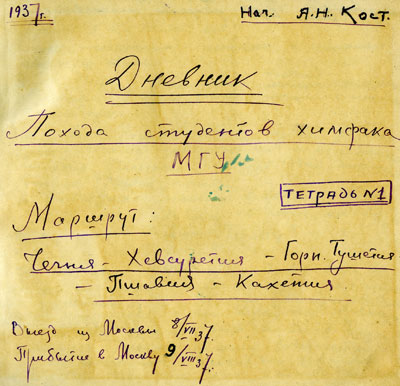 1937г. Нач. А.Н. Кост.
Дневник
Похода студентов химфака
МГУ
ТЕТРАДЬ №1
Маршрут:
Чечня - Хевсуретия - Горн. Тушетия
- Пшавия - Кахетия.
Выезд из Москвы 8/VII 37.
Прибытие в Москву 9/VIII 37.